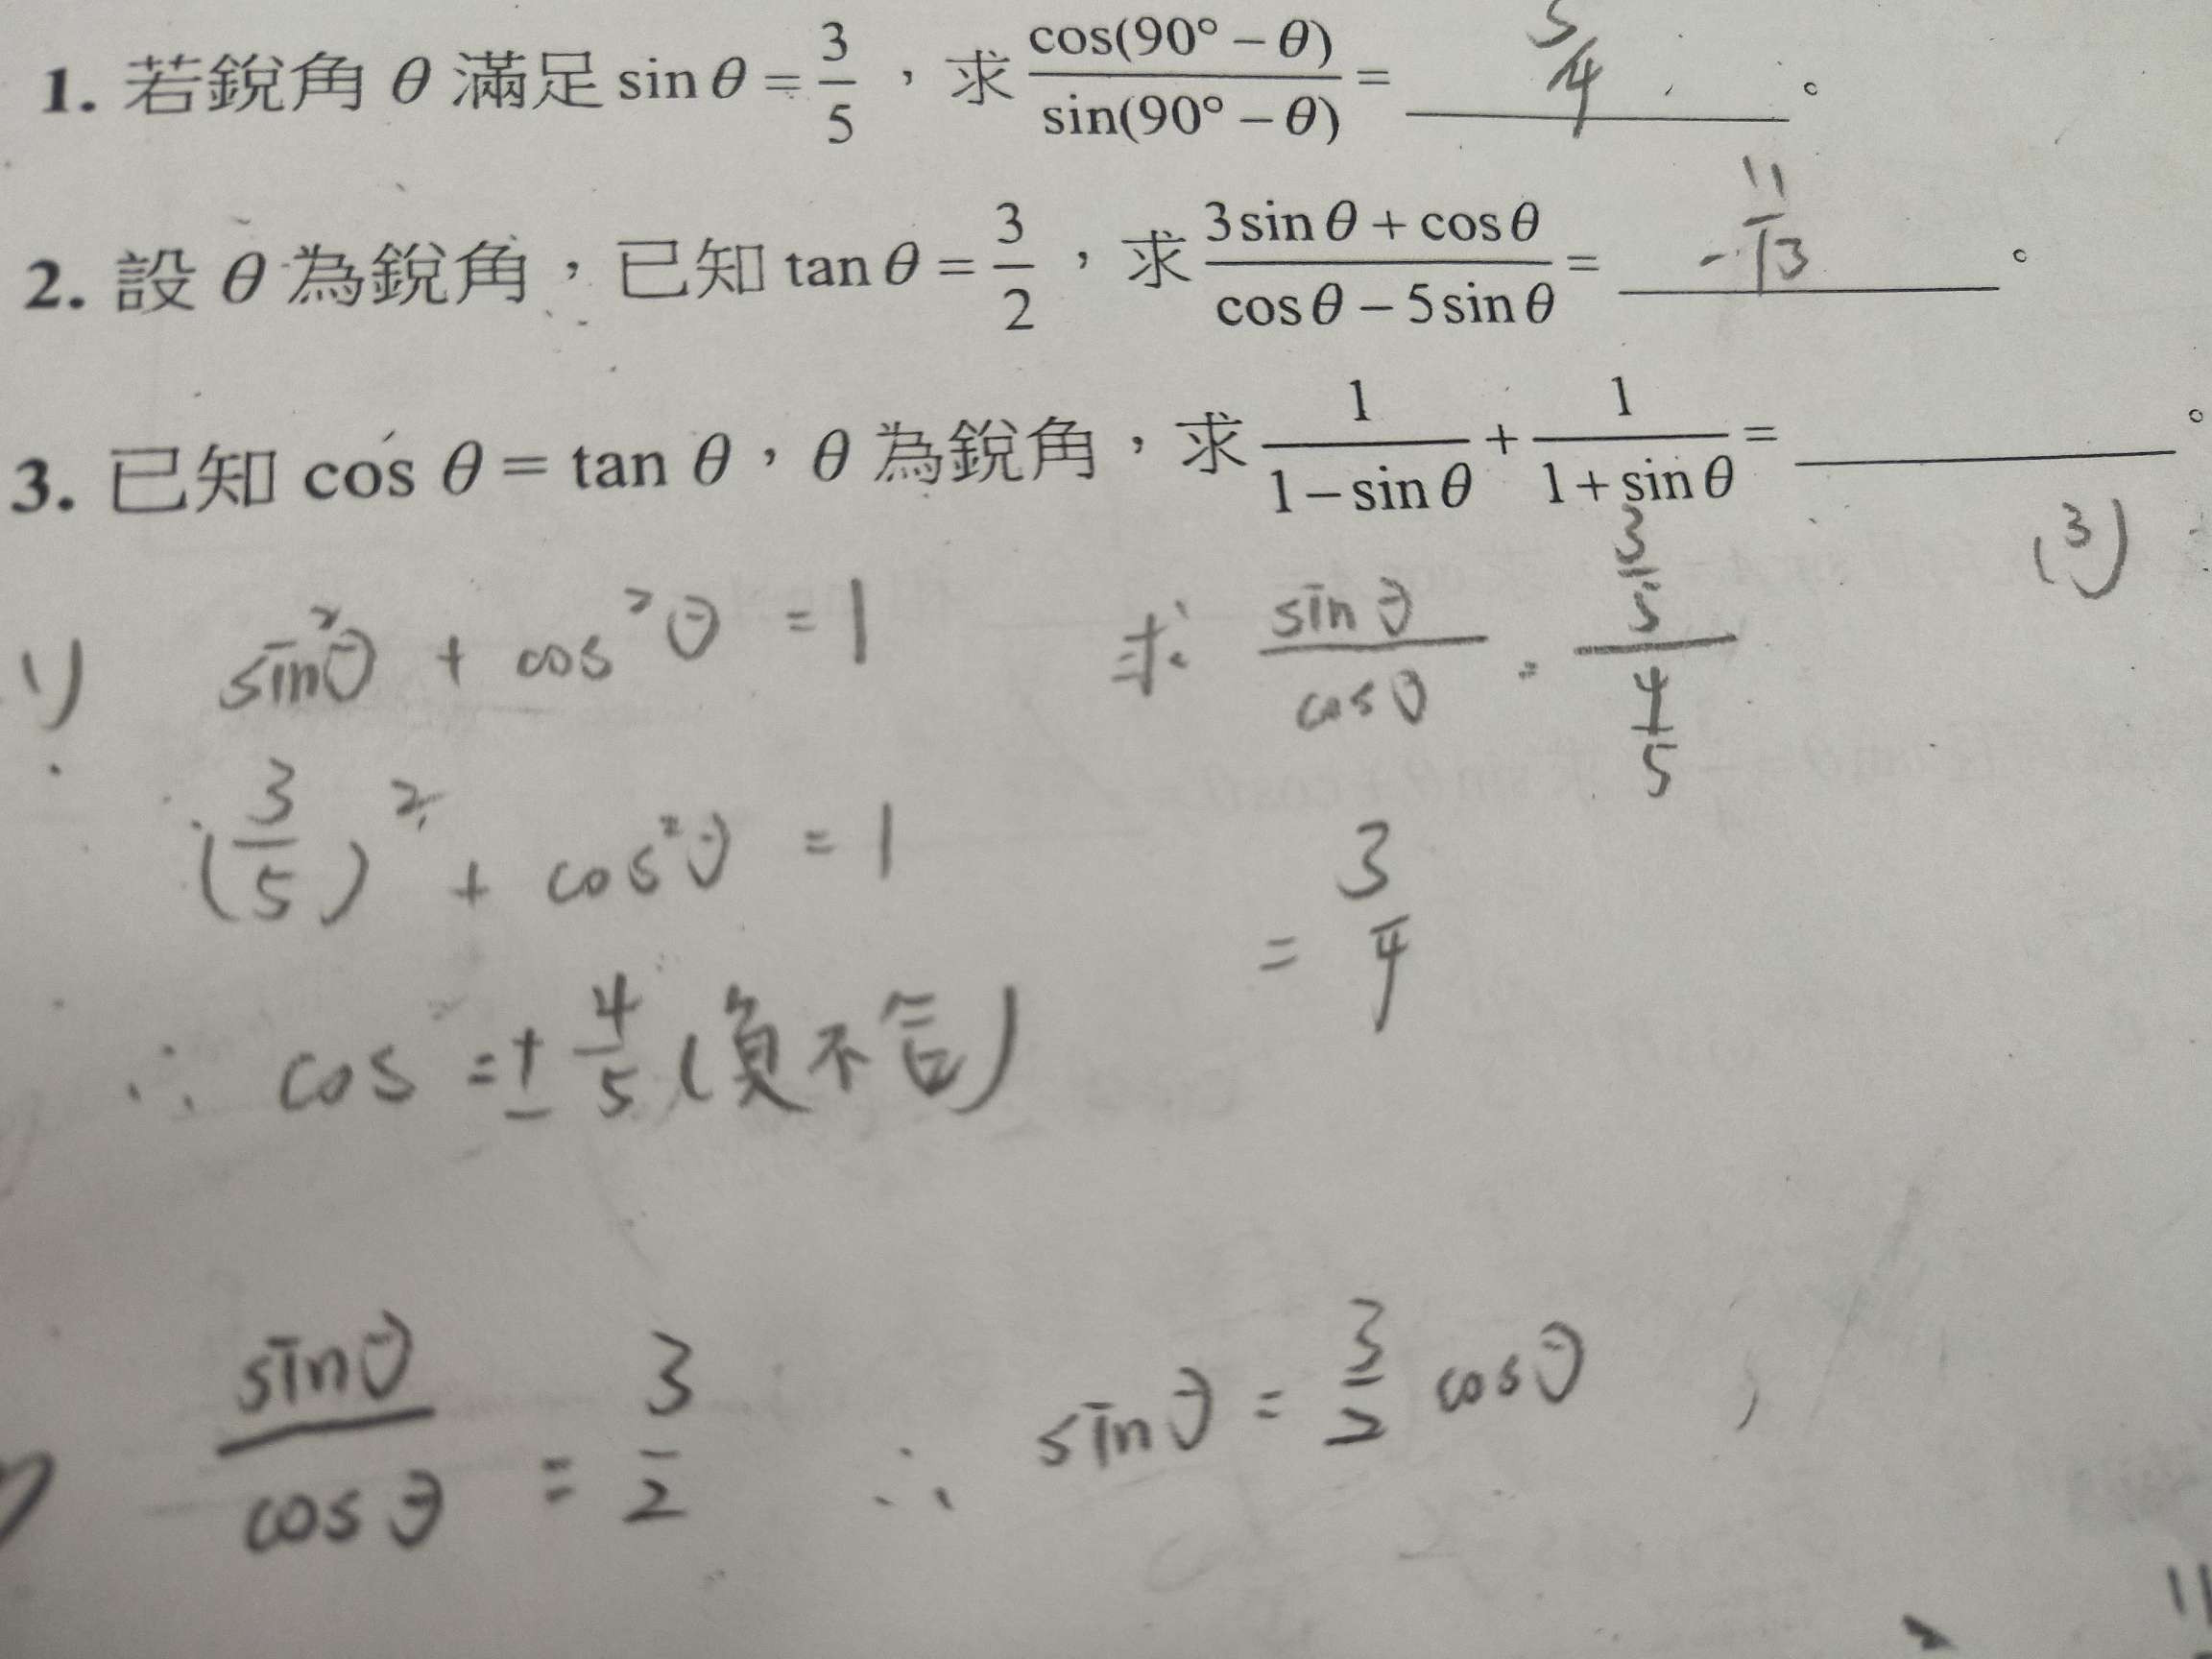 1. 若銳角 θ 滿足 sin θ = 3/5 ，求 cos(90° − θ)/sin(90° − θ) = 3/4 。
2. 設 θ 為銳角，已知 tan θ = 3/2 ，求 (3 sin θ + cos θ)/(cos θ − 5 sin θ) = -11/13 。
3. 已知 cos θ = tan θ，θ 為銳角，求 1/(1 − sin θ) + 1/(1 + sin θ) = 。
(3)
1) sin²θ + cos²θ = 1
求 sinθ/cosθ = (3/5)/(4/5)
(3/5)² + cos²θ = 1
= 3/4
∴ cos = ± 4/5 (負不合)
sinθ/cosθ = 3/2 ∴ sinθ = 3/2 cosθ
11